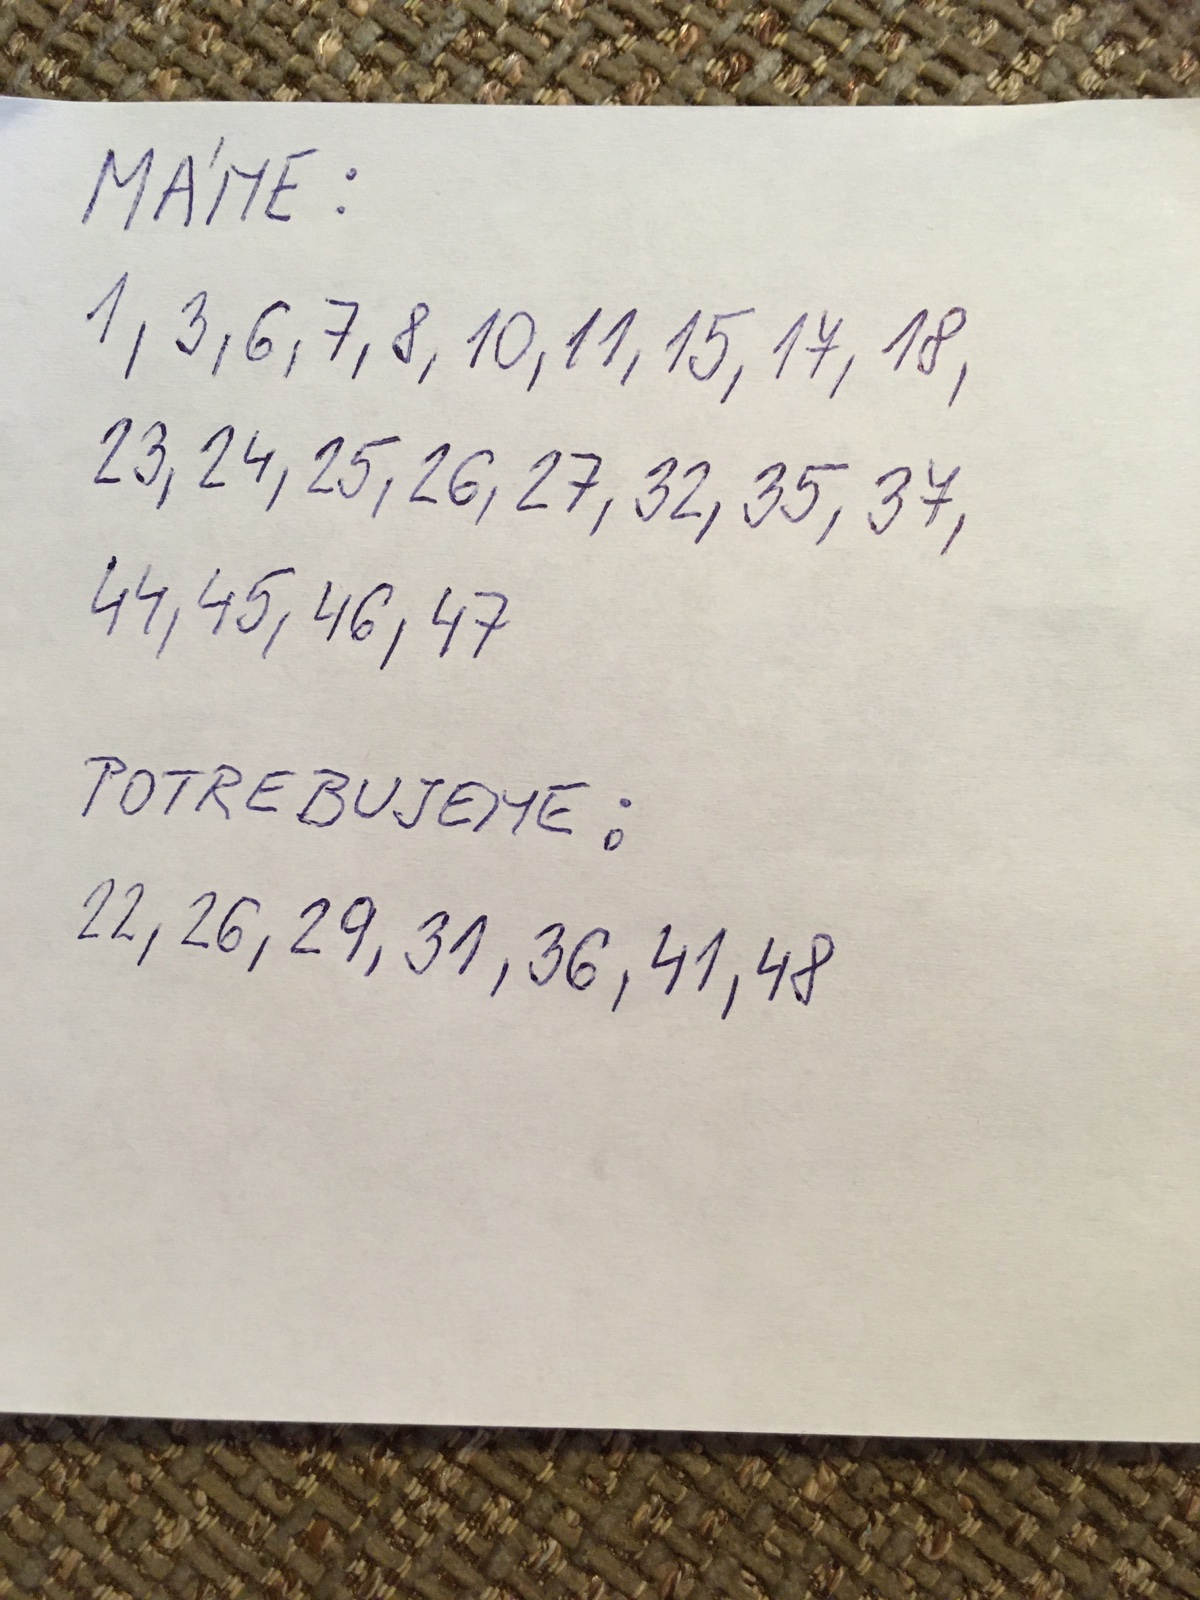 MÁME:
1, 3, 6, 7, 8, 10, 11, 15, 17, 18,
23, 24, 25, 26, 27, 32, 35, 37,
44, 45, 46, 47
POTREBUJEME:
22, 26, 29, 31, 36, 41, 48